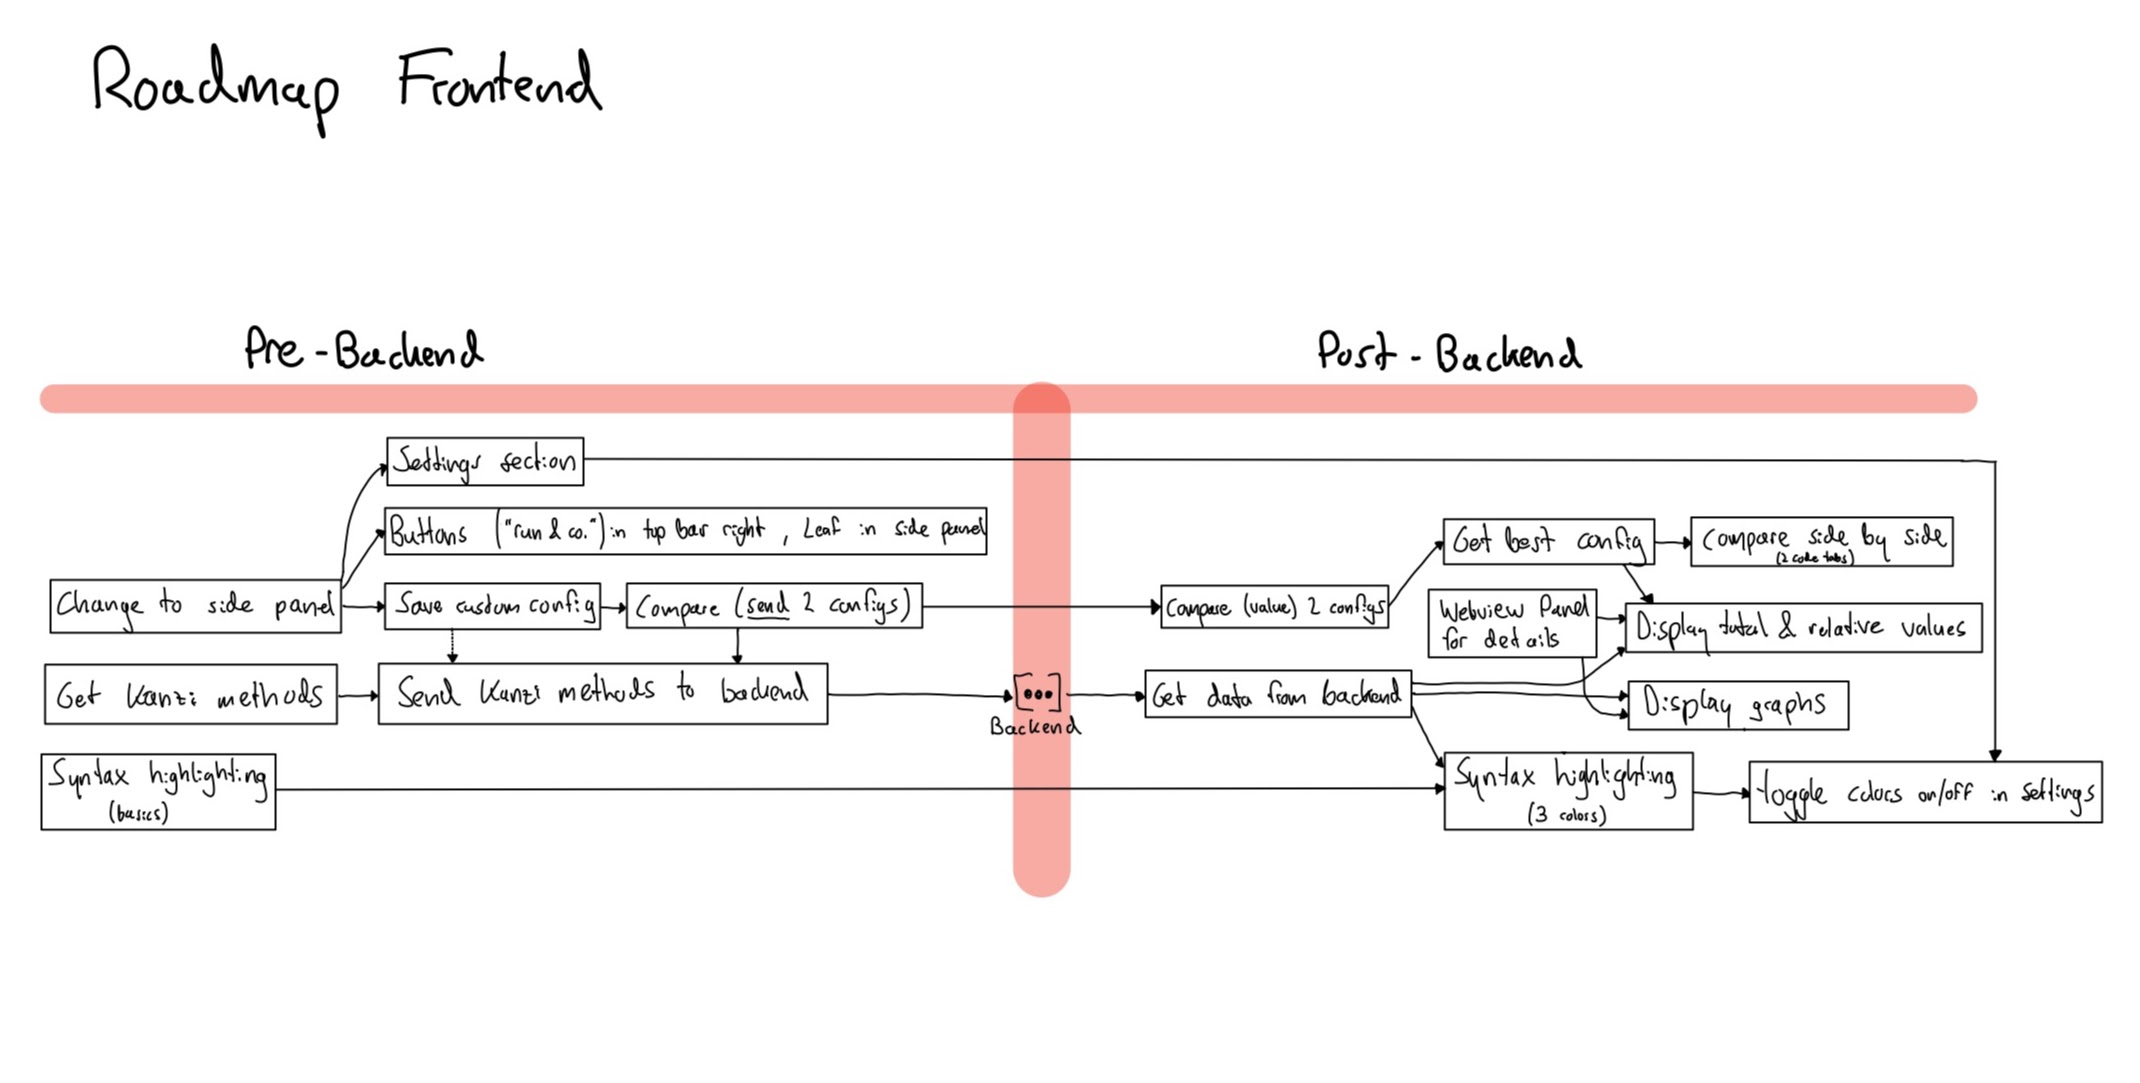 Roadmap Frontend
Pre-Backend
Post-Backend
Settings section
Buttons ("run & co.") in top bar right, Leaf in side panel
Change to side panel
Save custom config
Compare (send 2 configs)
Get Kanzi methods
Send Kanzi methods to backend
Syntax highlighting
(basics)
[...]
Backend
Compare (value) 2 configs
Get best config
Compare side by side
(2 code tabs)
Webview Panel
for details
Display total & relative values
Get data from backend
Display graphs
Syntax highlighting
(3 colors)
toggle colors on/off in settings